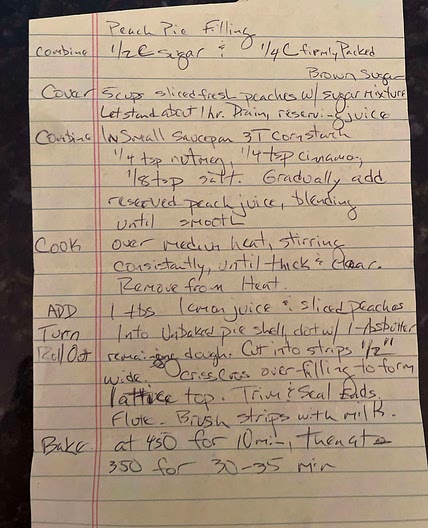 Peach Pie Filling
Combine 1/2 C sugar & 1/4 C firmly Packed
Brown Sugar
Cover 5 cups sliced fresh peaches w/ sugar mixture
Let stand about 1 hr. Drain, reserving juice
Combine In Small Saucepan 3T cornstarch
1/4 tsp nutmeg, 1/4 tsp cinnamon,
1/8 tsp salt. Gradually add
reserved peach juice, blending
until smooth
Cook over medium heat, stirring
consistantly, until thick & clear.
Remove from Heat.
ADD 1 tbs lemon juice & sliced peaches
Turn Into Unbaked pie shell dot w/ 1-tbs butter
Roll Out remaining dough. Cut into strips 1/2"
wide. Criss Cross over filling to form
lattice top. Trim & Seal Ends.
Flute. Brush strips with milk.
Bake at 450 for 10 min, then at
350 for 30-35 min